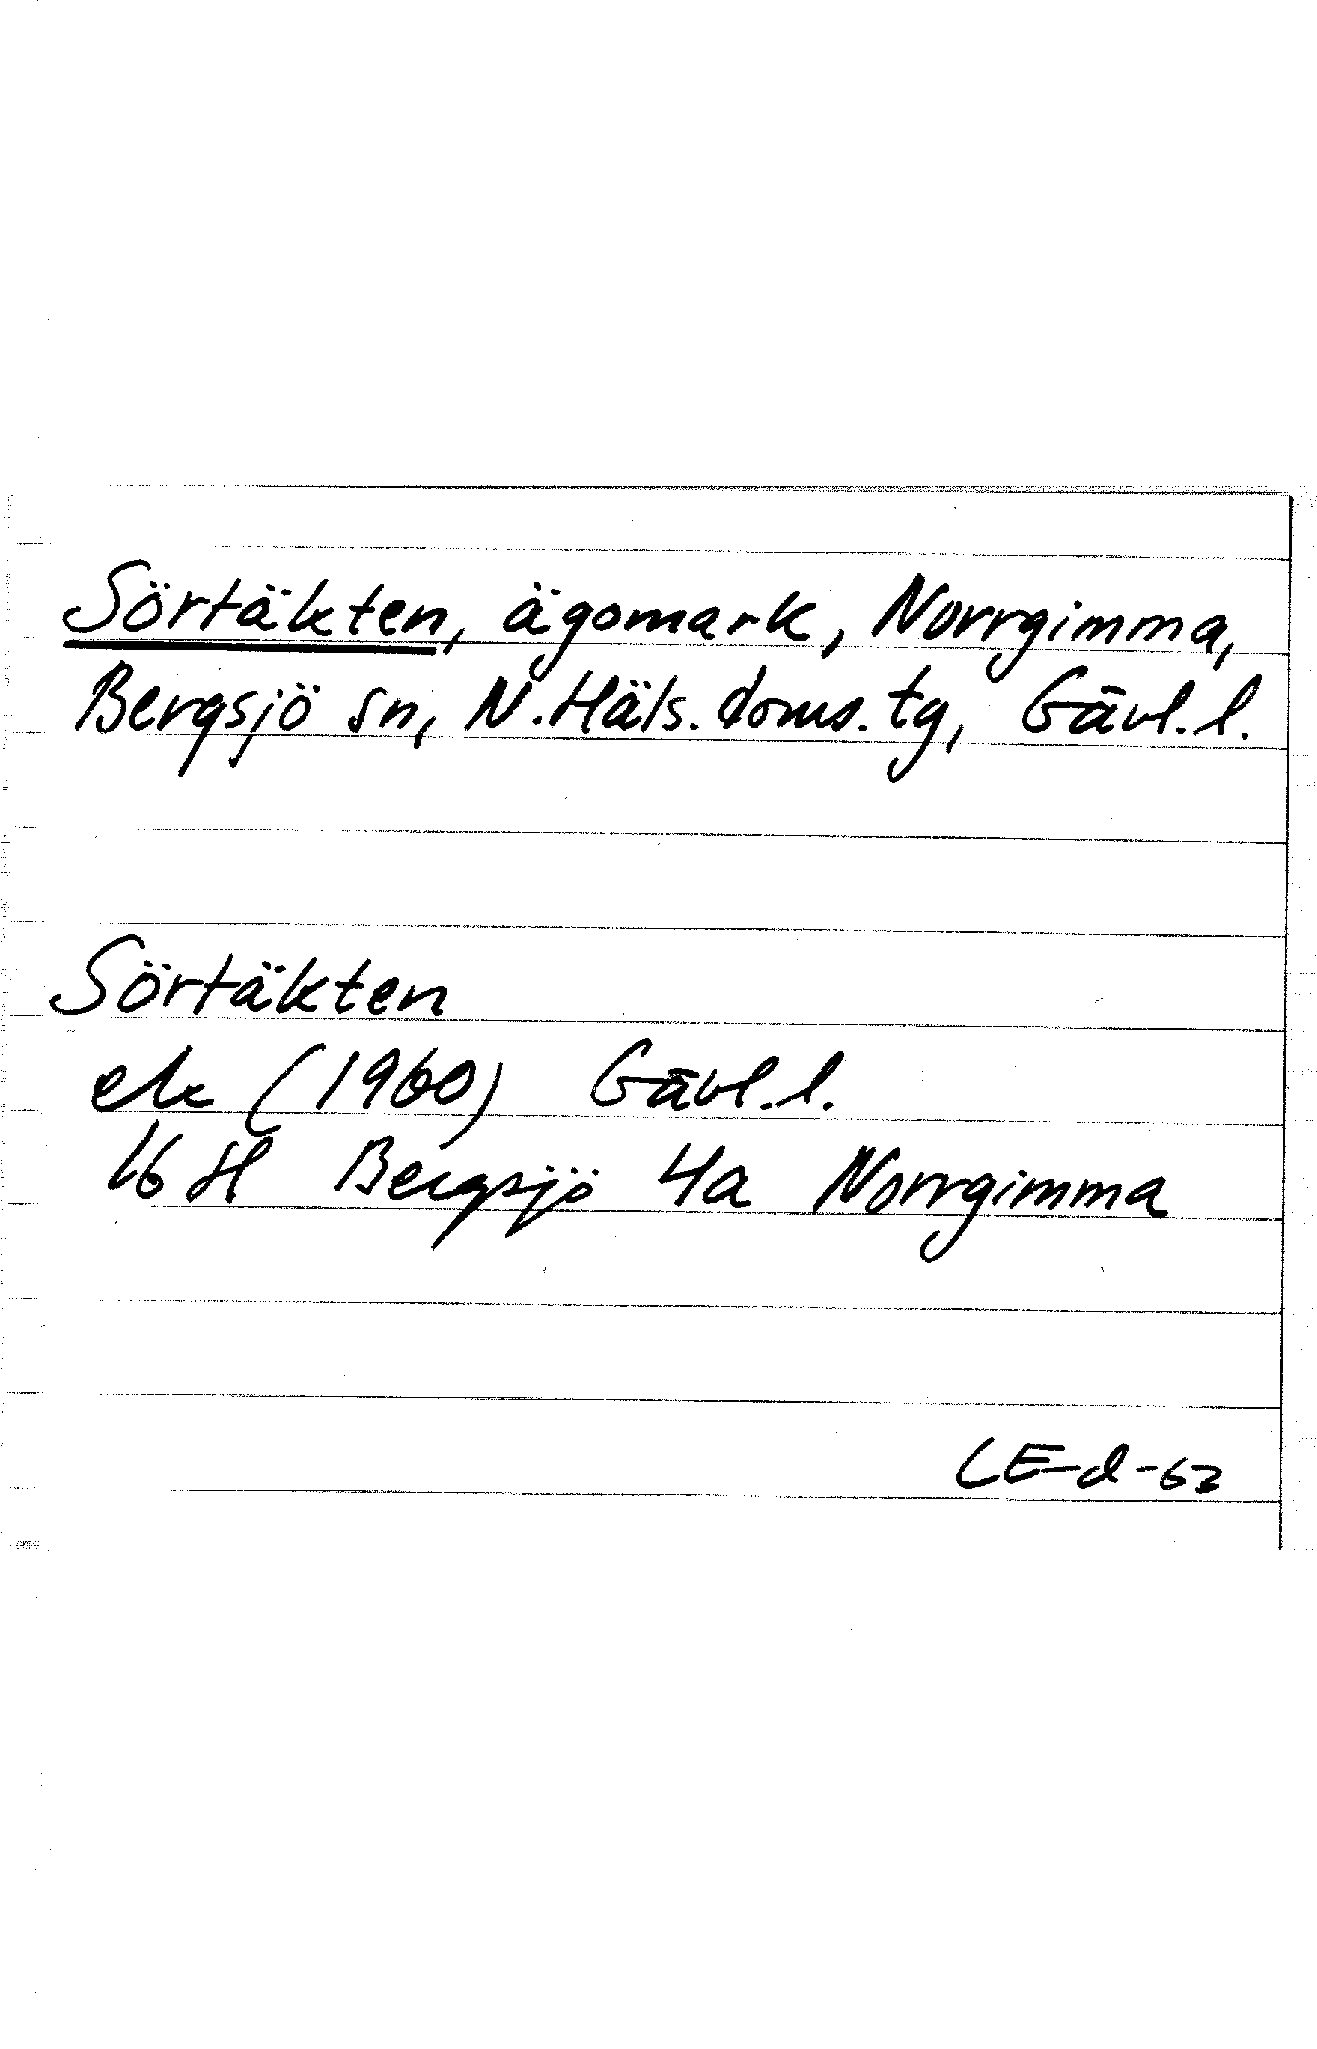 Sörtäkten, ägomark, Norrgimma,
Bergsjö sn, N.Häls.doms.tg, Gävl.l.
Sörtäkten
ek (1960) Gävl.l.
16 H Bergsjö 4a Norrgimma
LE-d-62